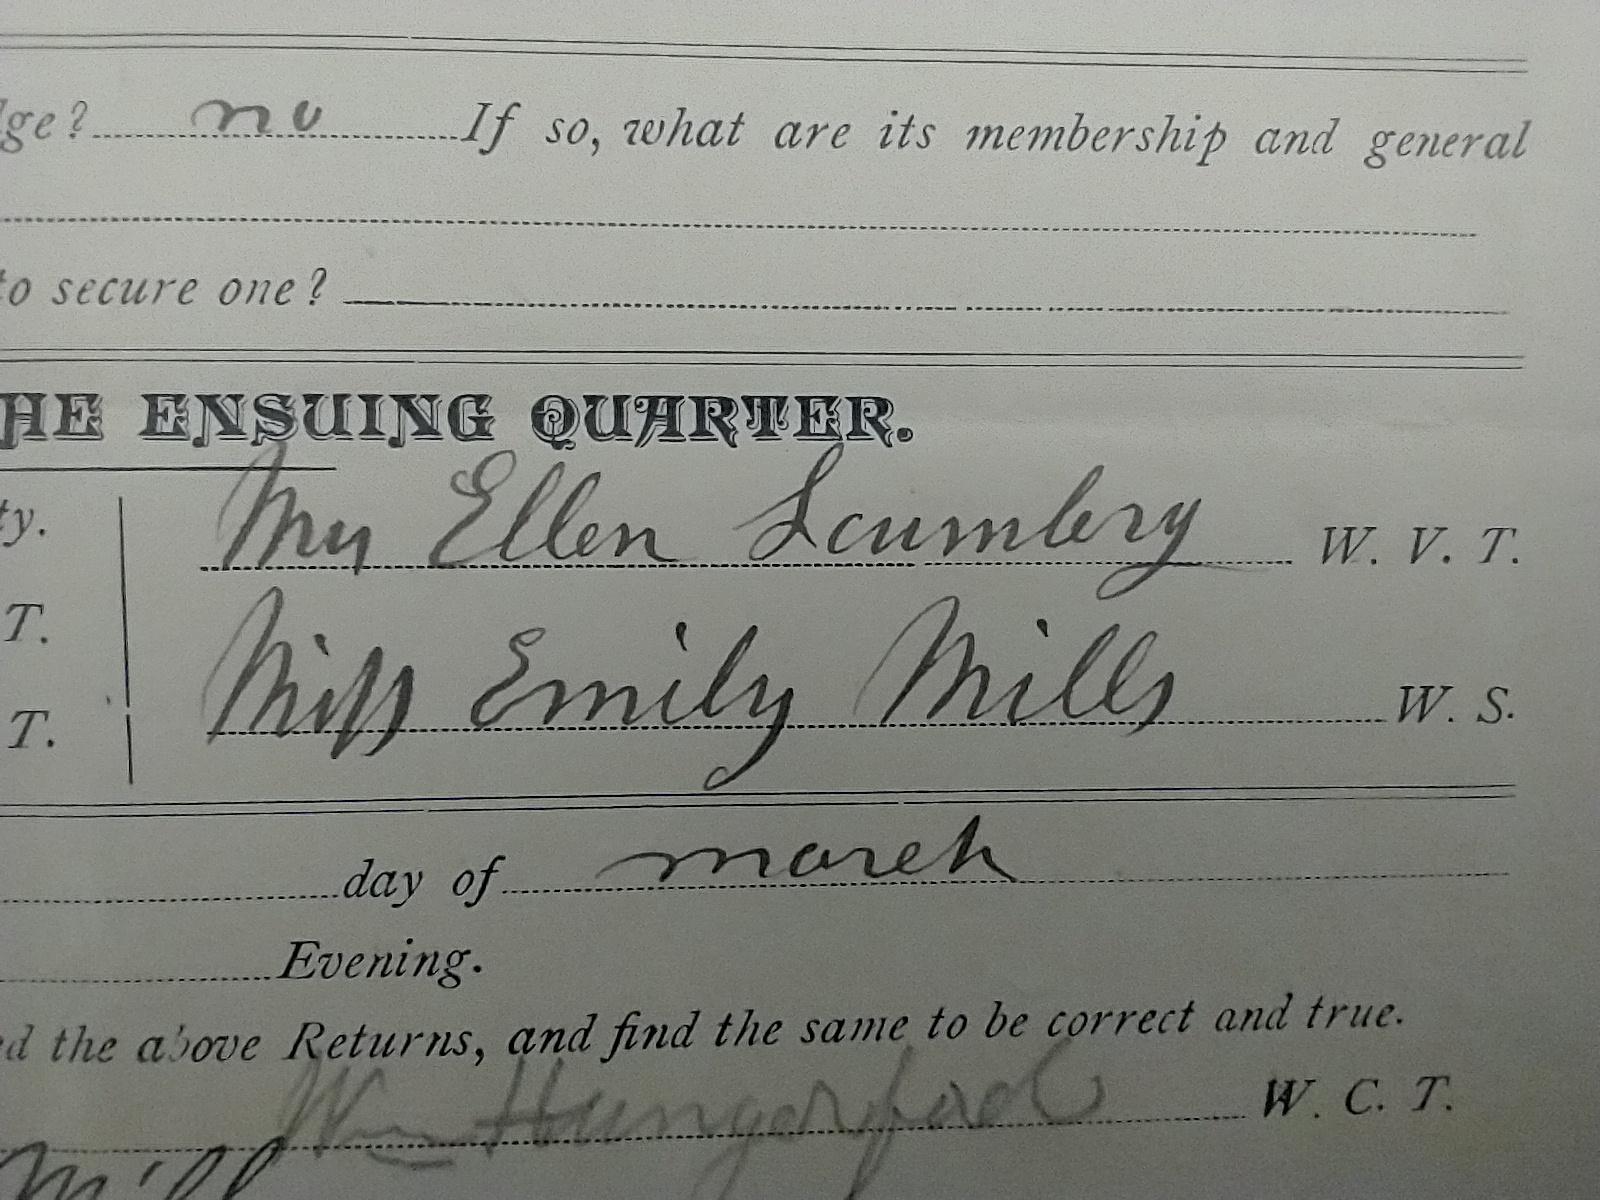 ge? no If so, what are its membership and general
to secure one?
HE ENSUING QUARTER.
ty. Mrs Ellen Scumbery W. V. T.
T.
Miss Emily Mills W. S.
T.
day of march
Evening.
ed the above Returns, and find the same to be correct and true.
Wm Hungerford W. C. T.
Mill